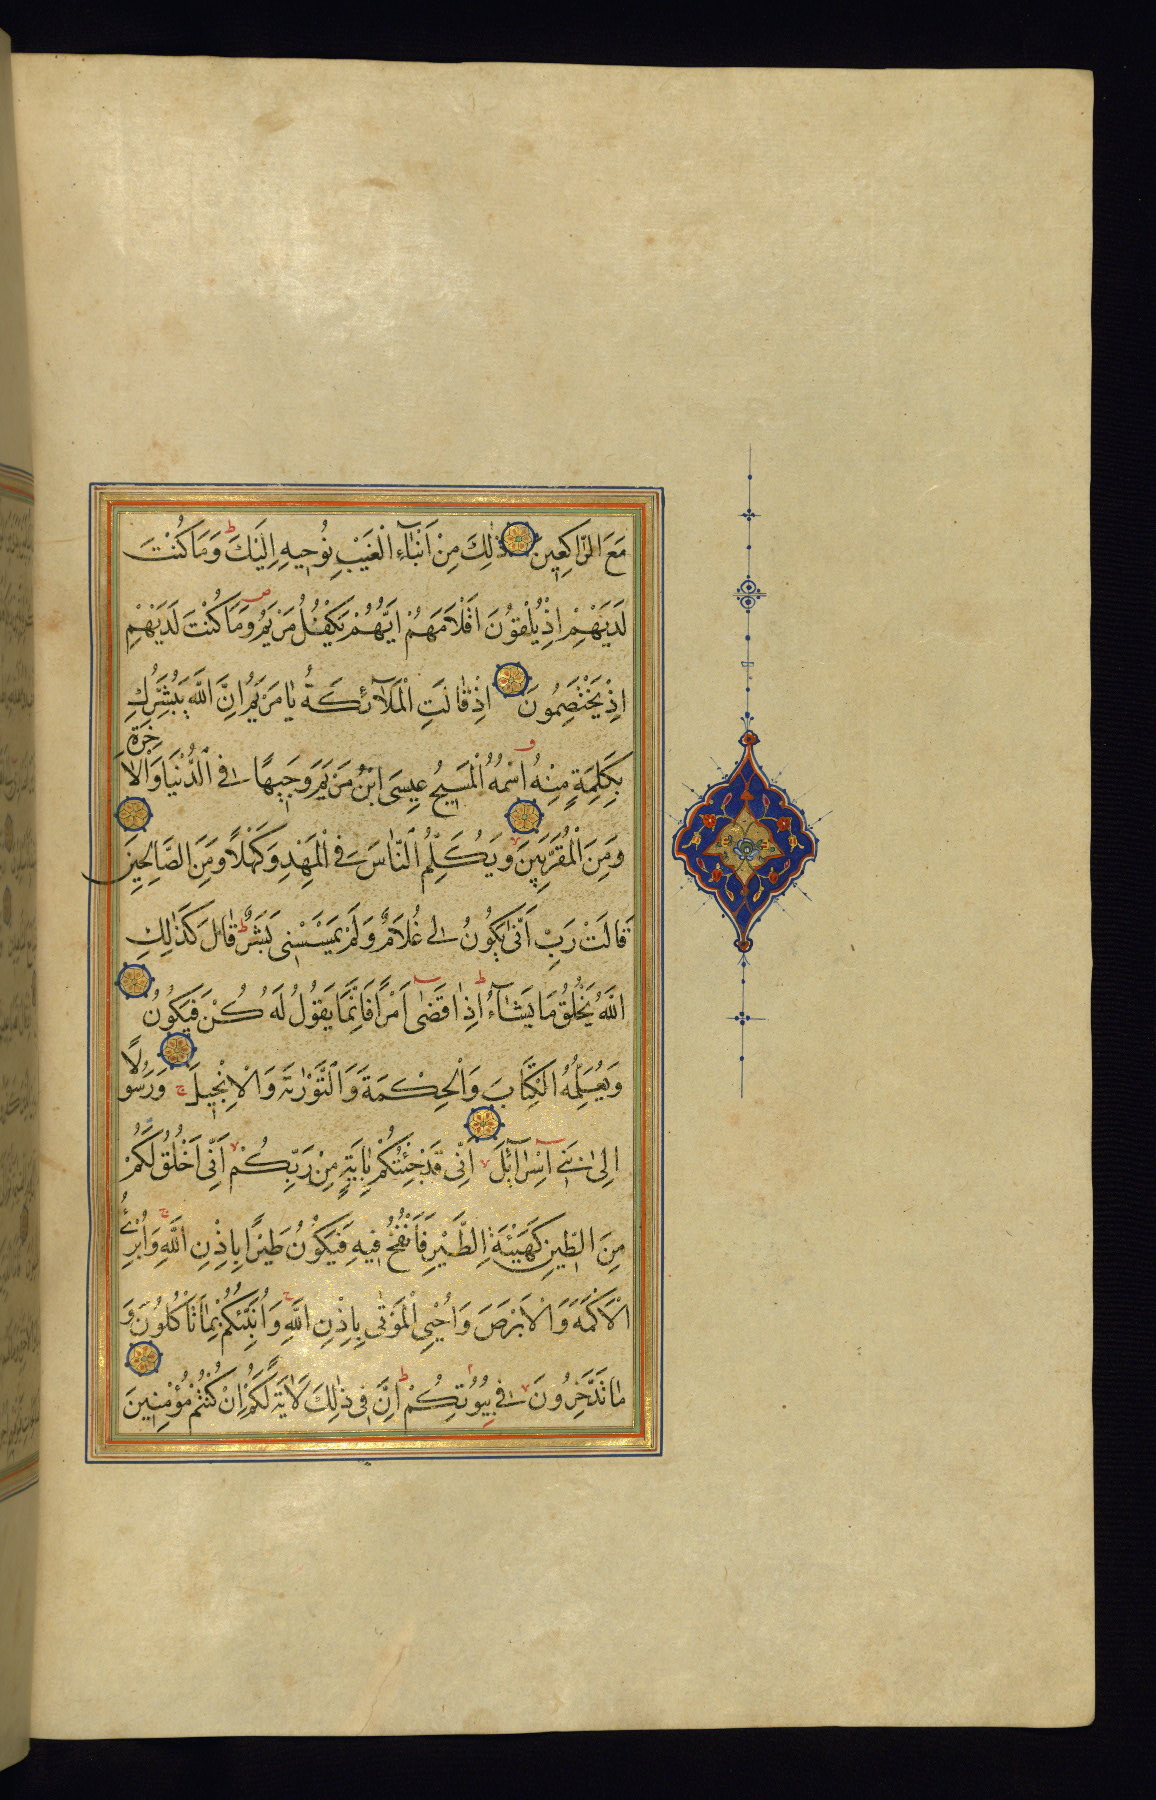 مَعَ الرَّاكِعِينَ ذٰلِكَ مِنْ اَنْبَآءِ الْغَيْبِ نُوحِيهِ اِلَيْكَ ط وَمَا كُنْتَ
لَدَيْهِمْ اِذْ يُلْقُونَ اَقْلَامَهُمْ اَيُّهُمْ يَكْفُلُ مَرْيَمَ ص وَمَا كُنْتَ لَدَيْهِمْ
اِذْ يَخْتَصِمُونَ اِذْ قَالَتِ الْمَلَآئِكَةُ يَا مَرْيَمُ اِنَّ اللَّهَ يُبَشِّرُكِ
بِكَلِمَةٍ مِنْهُ اسْمُهُ الْمَسِيحُ عِيسَى ابْنُ مَرْيَمَ وَجِيهًا فِي الدُّنْيَا وَالْاٰخِرَةِ
وَمِنَ الْمُقَرَّبِينَ وَيُكَلِّمُ النَّاسَ فِي الْمَهْدِ وَكَهْلًا وَمِنَ الصَّالِحِينَ
قَالَتْ رَبِّ اَنّٰى يَكُونُ لِي غُلَامٌ وَلَمْ يَمْسَسْنِي بَشَرٌ ط قَالَ كَذٰلِكِ
اللَّهُ يَخْلُقُ مَا يَشَآءُ ط اِذَا قَضٰى اَمْرًا فَاِنَّمَا يَقُولُ لَهُ كُنْ فَيَكُونُ
وَيُعَلِّمُهُ الْكِتَابَ وَالْحِكْمَةَ وَالتَّوْرٰيةَ وَالْاِنْجِيلَ ج وَرَسُولًا
اِلٰى بَنِي اِسْرَآئِلَ لا اَنِّي قَدْ جِئْتُكُمْ بِاٰيَةٍ مِنْ رَبِّكُمْ لا اَنِّي اَخْلُقُ لَكُمْ
مِنَ الطِّينِ كَهَيْئَةِ الطَّيْرِ فَاَنْفُخُ فِيهِ فَيَكُونُ طَيْرًا بِاِذْنِ اللَّهِ ج وَاُبْرِئُ
الْاَكْمَهَ وَالْاَبْرَصَ وَاُحْيِي الْمَوْتٰى بِاِذْنِ اللَّهِ ج وَاُنَبِّئُكُمْ بِمَا تَاْكُلُونَ وَ
مَا تَدَّخِرُونَ لا فِي بُيُوتِكُمْ ط اِنَّ فِي ذٰلِكَ لَاٰيَةً لَكُمْ اِنْ كُنْتُمْ مُؤْمِنِينَ